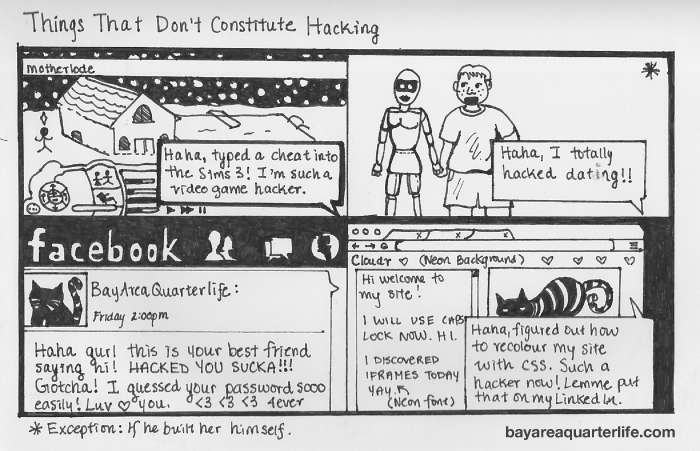 Things That Don't Constitute Hacking
motherlode
Haha, typed a cheat into
the Sims 3! I'm such a
video game hacker.
*
Haha, I totally
hacked dating!!
facebook
BayAreaQuarterlife:
Friday 2:00pm
Haha gurl this is your best friend
saying hi! HACKED YOU SUCKA!!!
Gotcha! I guessed your password sooo
easily! Luv ♡ you. <3 <3 <3 4ever
Cloudr ♡ (Neon Background) ♡ ♡ ♡ ♡
Hi welcome to
my site!
I WILL USE CAPS
LOCK NOW. HI.
I DISCOVERED
IFRAMES TODAY
YAY.
(Neon font)
Haha, figured out how
to recolour my site
with CSS. Such a
hacker now! Lemme put
that on my LinkedIn.
* Exception: If he built her himself.
bayareaquarterlife.com